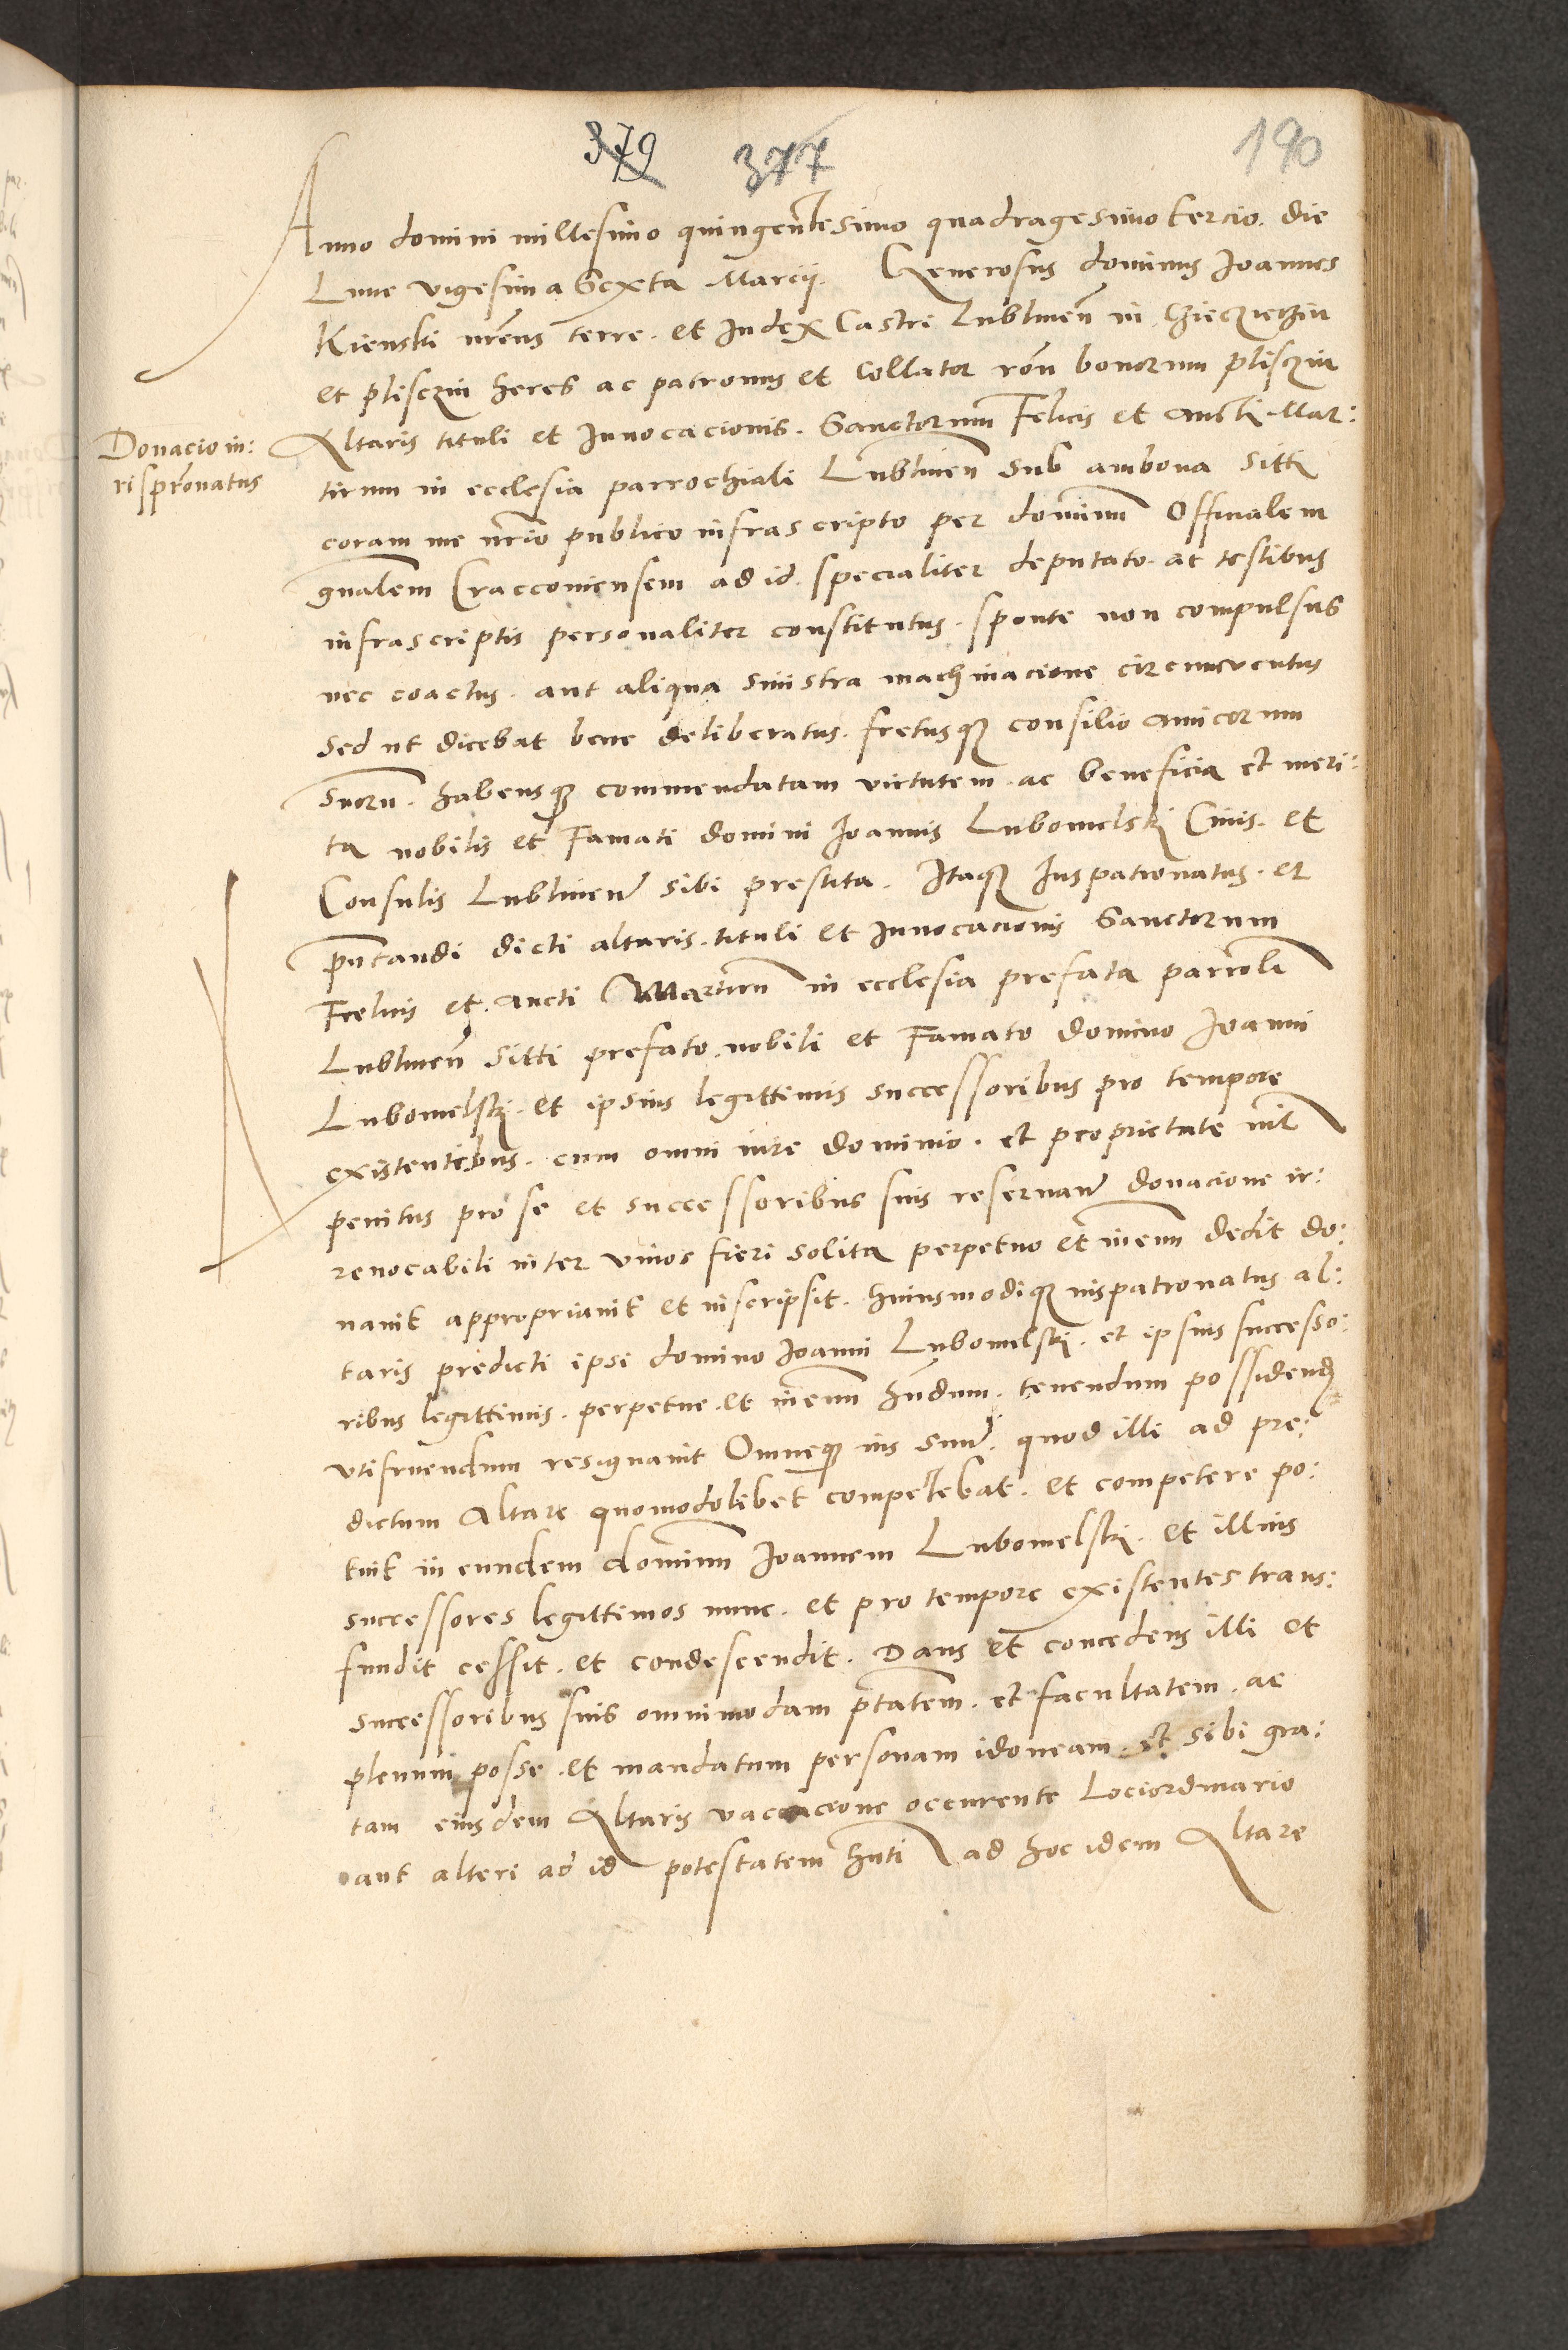 379 377 190
Anno domini millesimo quingentesimo quadragesimo tercio. die
Lune vigesima Sexta Marcij. Generosus dominus Joannes
Kienski nrens terre. et Judex Castri Lublinen in
et plisczin heres ac patronus et Collator ron bonorum plisczin
Donacio iu:
ris pronatus
Altaris tituli et Innocacionis. Sanctorum Felicis et Aucti Mar:
tirum in ecclesia parrochiali Lublinen sub ambona sitti
coram me nrio publico infrascripto per dominum Officialem
gnalem Cracoviensem ad id. specialiter deputato. ac testibus
infrascriptis personaliter constitutus. sponte non compulsus
nec coactus. aut aliqua sinistra machinacione circumventus
sed ut dicebat bene deliberatus. fretusque consilio amicorum
suorum. habensque commendatam virtutem. ac beneficia et meri:
ta nobilis et Famati domini Joannis Lubomelski Civis. et
Consulis Lublinen sibi prestita. Itaque Iuspatronatus. et
pntandi dicti altaris. tituli et Innocacionis Sanctorum
Felicis et. Aucti Martirum in ecclesia prefata parroli
Lublinen sitti prefato nobili et Famato domino Joanni
Lubomelski. et ipsius legittimis successoribus pro tempore
existentibus. cum omni iure dominio. et proprietate nil
penitus pro se et successoribus suis reservan donacione ir:
revocabili inter vivos fieri solita perpetuo et inenum dedit do:
navit appropriavit et inscripsit. huiusmodique iuspatronatus al:
taris predicti ipsi domino Joanni Lubomelski. et ipsius successo:
ribus legittimis. perpetue. et inenum hndum. tenendum possidend
utifruendum resignavit Omneque ius suum. quod illi ad pre:
dictum Altare quomodolibet competebat. et competere po:
tuit in eundem dominum Joannem Lubomelski. et illius
successores legittimos nunc. et pro tempore existentes trans:
fundit cessit. et condescendit. Dans et concedens illi et
successoribus suis omnimodam ptatem. et facultatem. ac
plenum posse. et mandatum personam idoneam. et sibi gra:
tam eiusdem Altaris vaccacione occurente Lociordinario
aut alteri ad id potestatem hnti ad hoc idem Altare